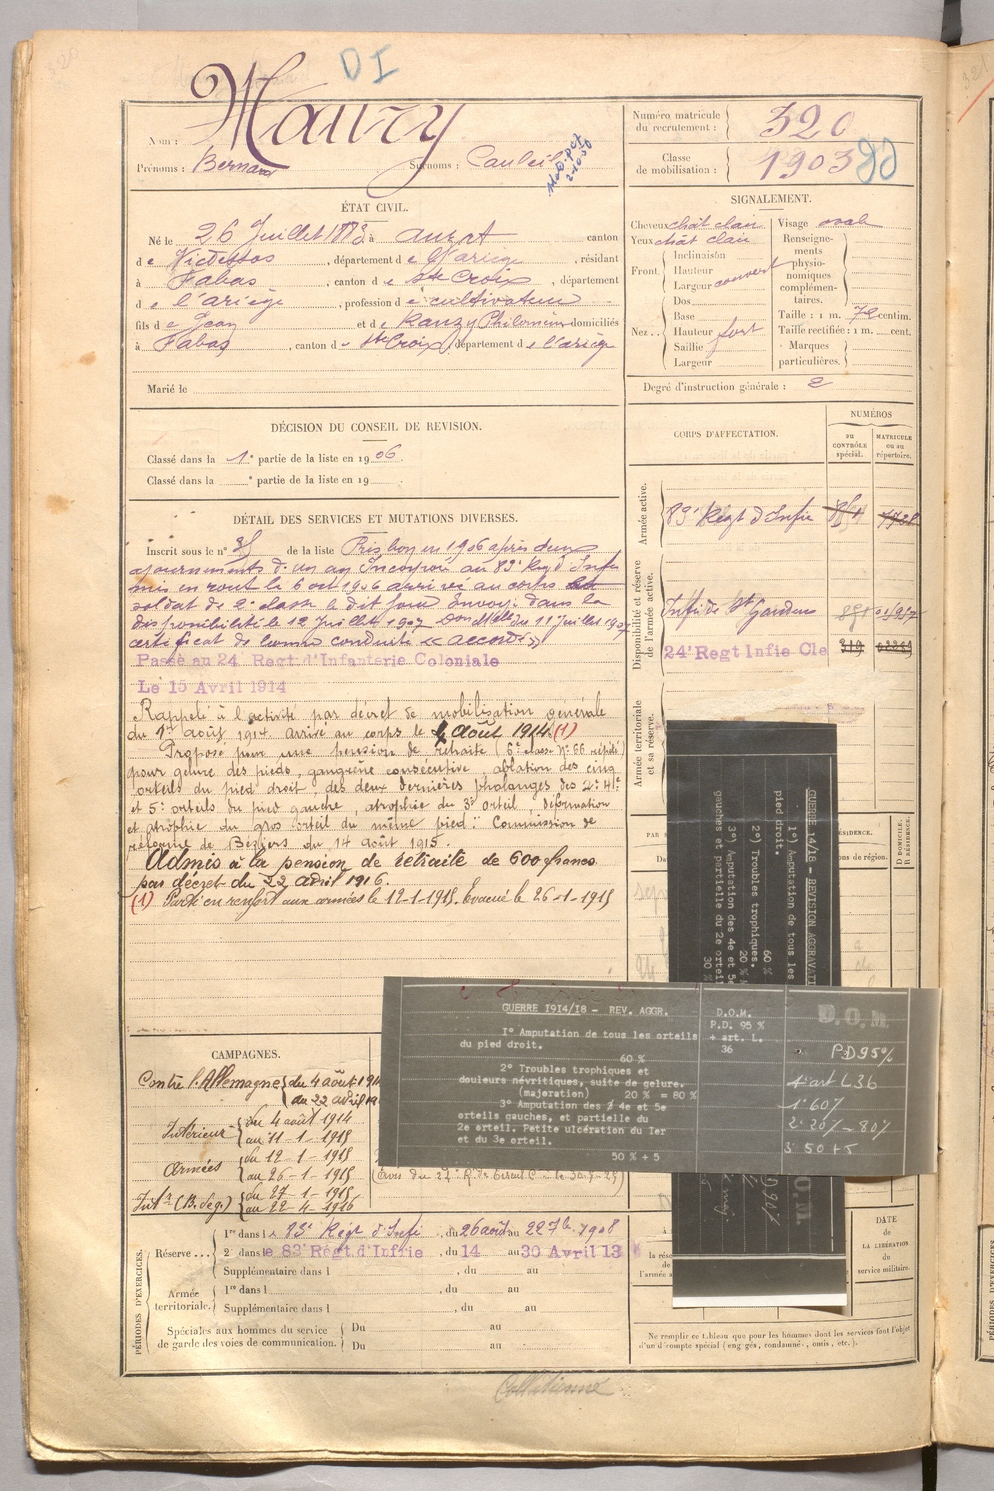 D I
Nom : Maury
Prénoms : Bernard Surnoms : Cauleil
Numéro matricule du recrutement : 320
Classe de mobilisation : 1903
ÉTAT CIVIL.
Né le 26 Juillet 1883 à Auzat canton
de Vicdessos, département de l'Ariège, résidant
à Fabas, canton de Ste Croix, département
de l'ariège, profession de cultivateur
fils de Jean et de Rauzy Philomène domiciliés
à Fabas, canton de Ste Croix, département de l'ariege
Marié le
SIGNALEMENT.
Cheveux chât clair Visage oval
Yeux chât clair
Front. Inclinaison Hauteur Largeur couvert
Nez.. Dos Base Hauteur Saillie Largeur fort
Renseignements physionomiques complémentaires.
Taille : 1 m. 72 centim.
Taille rectifiée : 1 m. cent.
Marques particulières.
Degré d'instruction générale : 2
DÉCISION DU CONSEIL DE REVISION.
Classé dans la 1e partie de la liste en 1906
Classé dans la e partie de la liste en 19
CORPS D'AFFECTATION.
NUMÉROS
au CONTRÔLE spécial.
MATRICULE ou au répertoire.
Armée active.
83e Régt d'Infie
Disponibilité et réserve de l'armée active.
Infie de St Gaudens
24e Regt Infie Cle 319
Armée territoriale et sa réserve.
DÉTAIL DES SERVICES ET MUTATIONS DIVERSES.
Inscrit sous le n° de la liste Pris bon en 1906 après deux
ajournements d'un an Incorporé au 83e Reg d'Infie
mis en route le 6 oct 1906 arrivé au corps
soldat de 2e classe le dit jour Envoyé dans la
disponibilité le 12 Juillet 1907 du 11 Juillet 1907
certificat de bonne conduite « accordé »
Passé au 24 Regt d'Infanterie Coloniale
Le 15 Avril 1914
Rappelé à l'activité par décret de mobilisation générale
du 1er août 1914. Arrivé au corps le 4 Août 1914. (1)
Proposé pour une pension de retraite (5e classe N° 66 répété)
pour gelure des pieds, gangrène consécutive, ablation des cinq
orteils du pied droit, des deux dernières phalanges des 2e 4e
et 5e orteils du pied gauche, atrophie du 3e orteil, déformation
et atrophie du gros orteil du même pied. Commission de
réforme de Béziers du 14 août 1915.
Admis à la pension de retraite de 600 francs
par décret du 22 avril 1916.
(1) Parti en renfort aux armées le 12-1-1915. Evacué le 26-1-1915
GUERRE 14/18 - REVISION AGGRAVATI
1°) Amputation de tous les
pied droit. 60 %
2°) Troubles trophiques. 20 %
3°) Amputation des 4e et 5e
gauches et partielle du 2e ortei
30 %
GUERRE 1914/18 - REV. AGGR.
1° Amputation de tous les orteils
du pied droit.
60 %
2° Troubles trophiques et
douleurs névritiques, suite de gelure.
(majoration) 20 % = 80 %
3° Amputation des 4e et 5e
orteils gauches, et partielle du
2e orteil. Petite ulcération du 1er
et du 3e orteil.
50 % + 5
D.O.M.
P.D. 95 %
+ art. L.
36
D.O.M.
P.D 95%
+ art L 36
1° 60%
2° 20% = 80%
3° 50 + 5
CAMPAGNES.
Contre l'Allemagne du 4 août 191
au 22 avril 19
Intérieur du 4 août 1914
au 11-1-1915
Armées du 12-1-1915
au 26-1-1915
Intr (B. de g.) du 27-1-1915
au 22-4-1916
PÉRIODES D'EXERCICES.
Réserve... 1re dans le 83e Régt d'Infie, du 26 août au 22 7bre 1908
2 dans le 83e Régt d'Infrie, du 14 au 30 Avril 13
Supplémentaire dans l , du au
Armée territoriale. 1re dans l , du au
Supplémentaire dans l , du au
Spéciales aux hommes du service de garde des voies de communication. Du au
Du au
DATE DE LA LIBÉRATION du service militaire.
Ne remplir ce tableau que pour les hommes dont les services font l'objet
d'un décompte spécial (engagés, condamnés, omis, etc.).